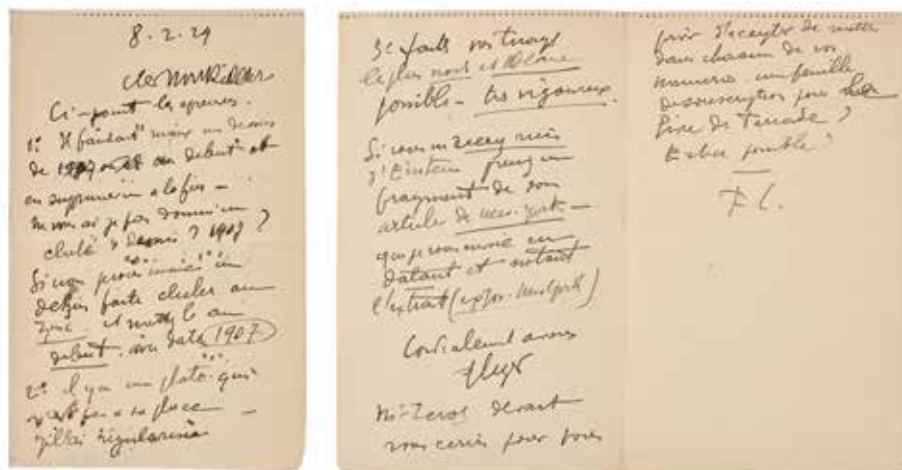 8.2.29
Cher Mr
Ci-joint les épreuves.
1º Il faudrait mieux un dessin
de 1907 au début et
en supprimer un à la fin –
ne vous ai je pas donné un
cliché 1907 ?
Si non je vous envoie un
dessin faite clicher au
zinc et mettez le au
début avec date 1907
2º il y a un photo qui
n'est pas a sa place –
régulariser
3º faite vos tirages
le plus noir et blanc
possible – très vigoureux.
Si vous ne recevez rien
d'Einstein prenez un
fragment de son
article de New-York –
que je vous envoie en
datant et notant
l'extrait (expos. New York)
Cordialement a vous
Zervos devant
vous
d'accepter de mettre
dans chacun de vos
numéros une feuille
de souscription pour
livre de Tériade ?
Est ce possible ?
F L.